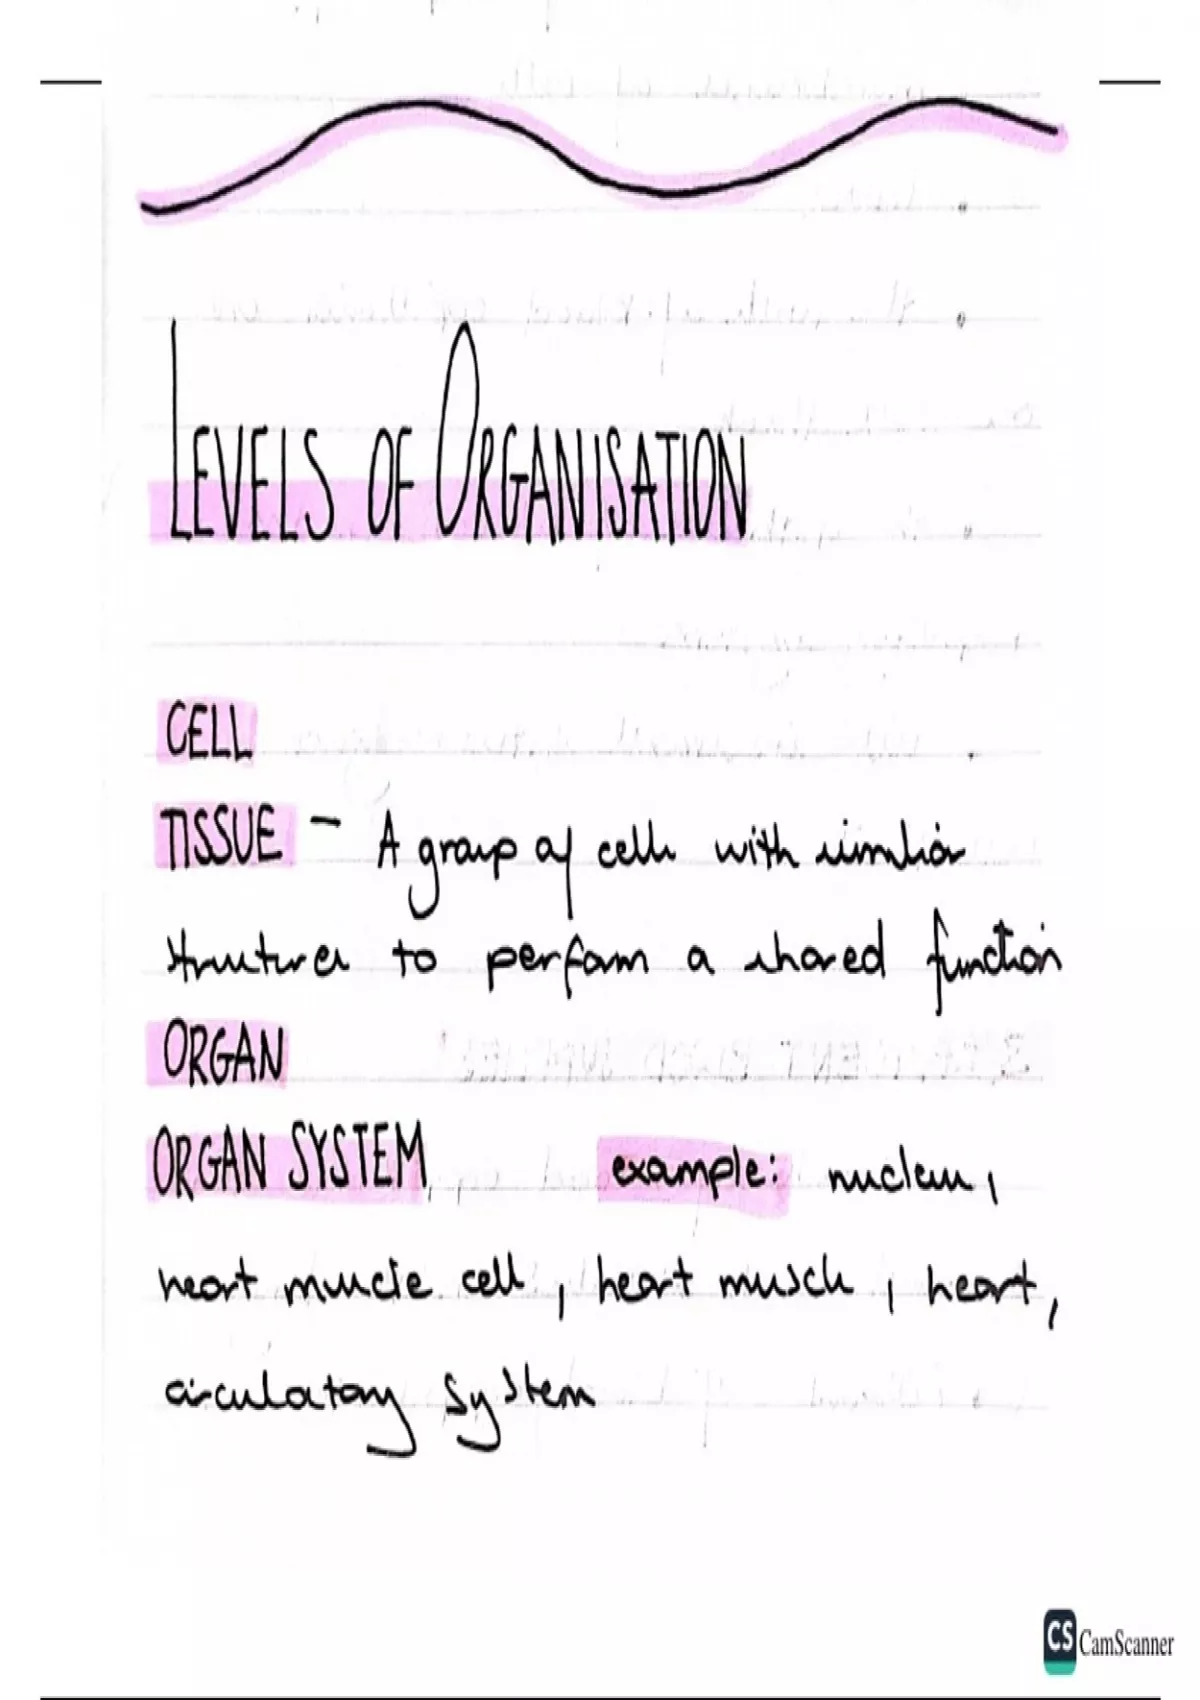 LEVELS OF ORGANISATION
CELL
TISSUE - A group of cells with similiar
structures to perform a shared function
ORGAN
ORGAN SYSTEM example: nucleus,
heart muscle cell, heart muscle, heart,
circulatory system
CS CamScanner